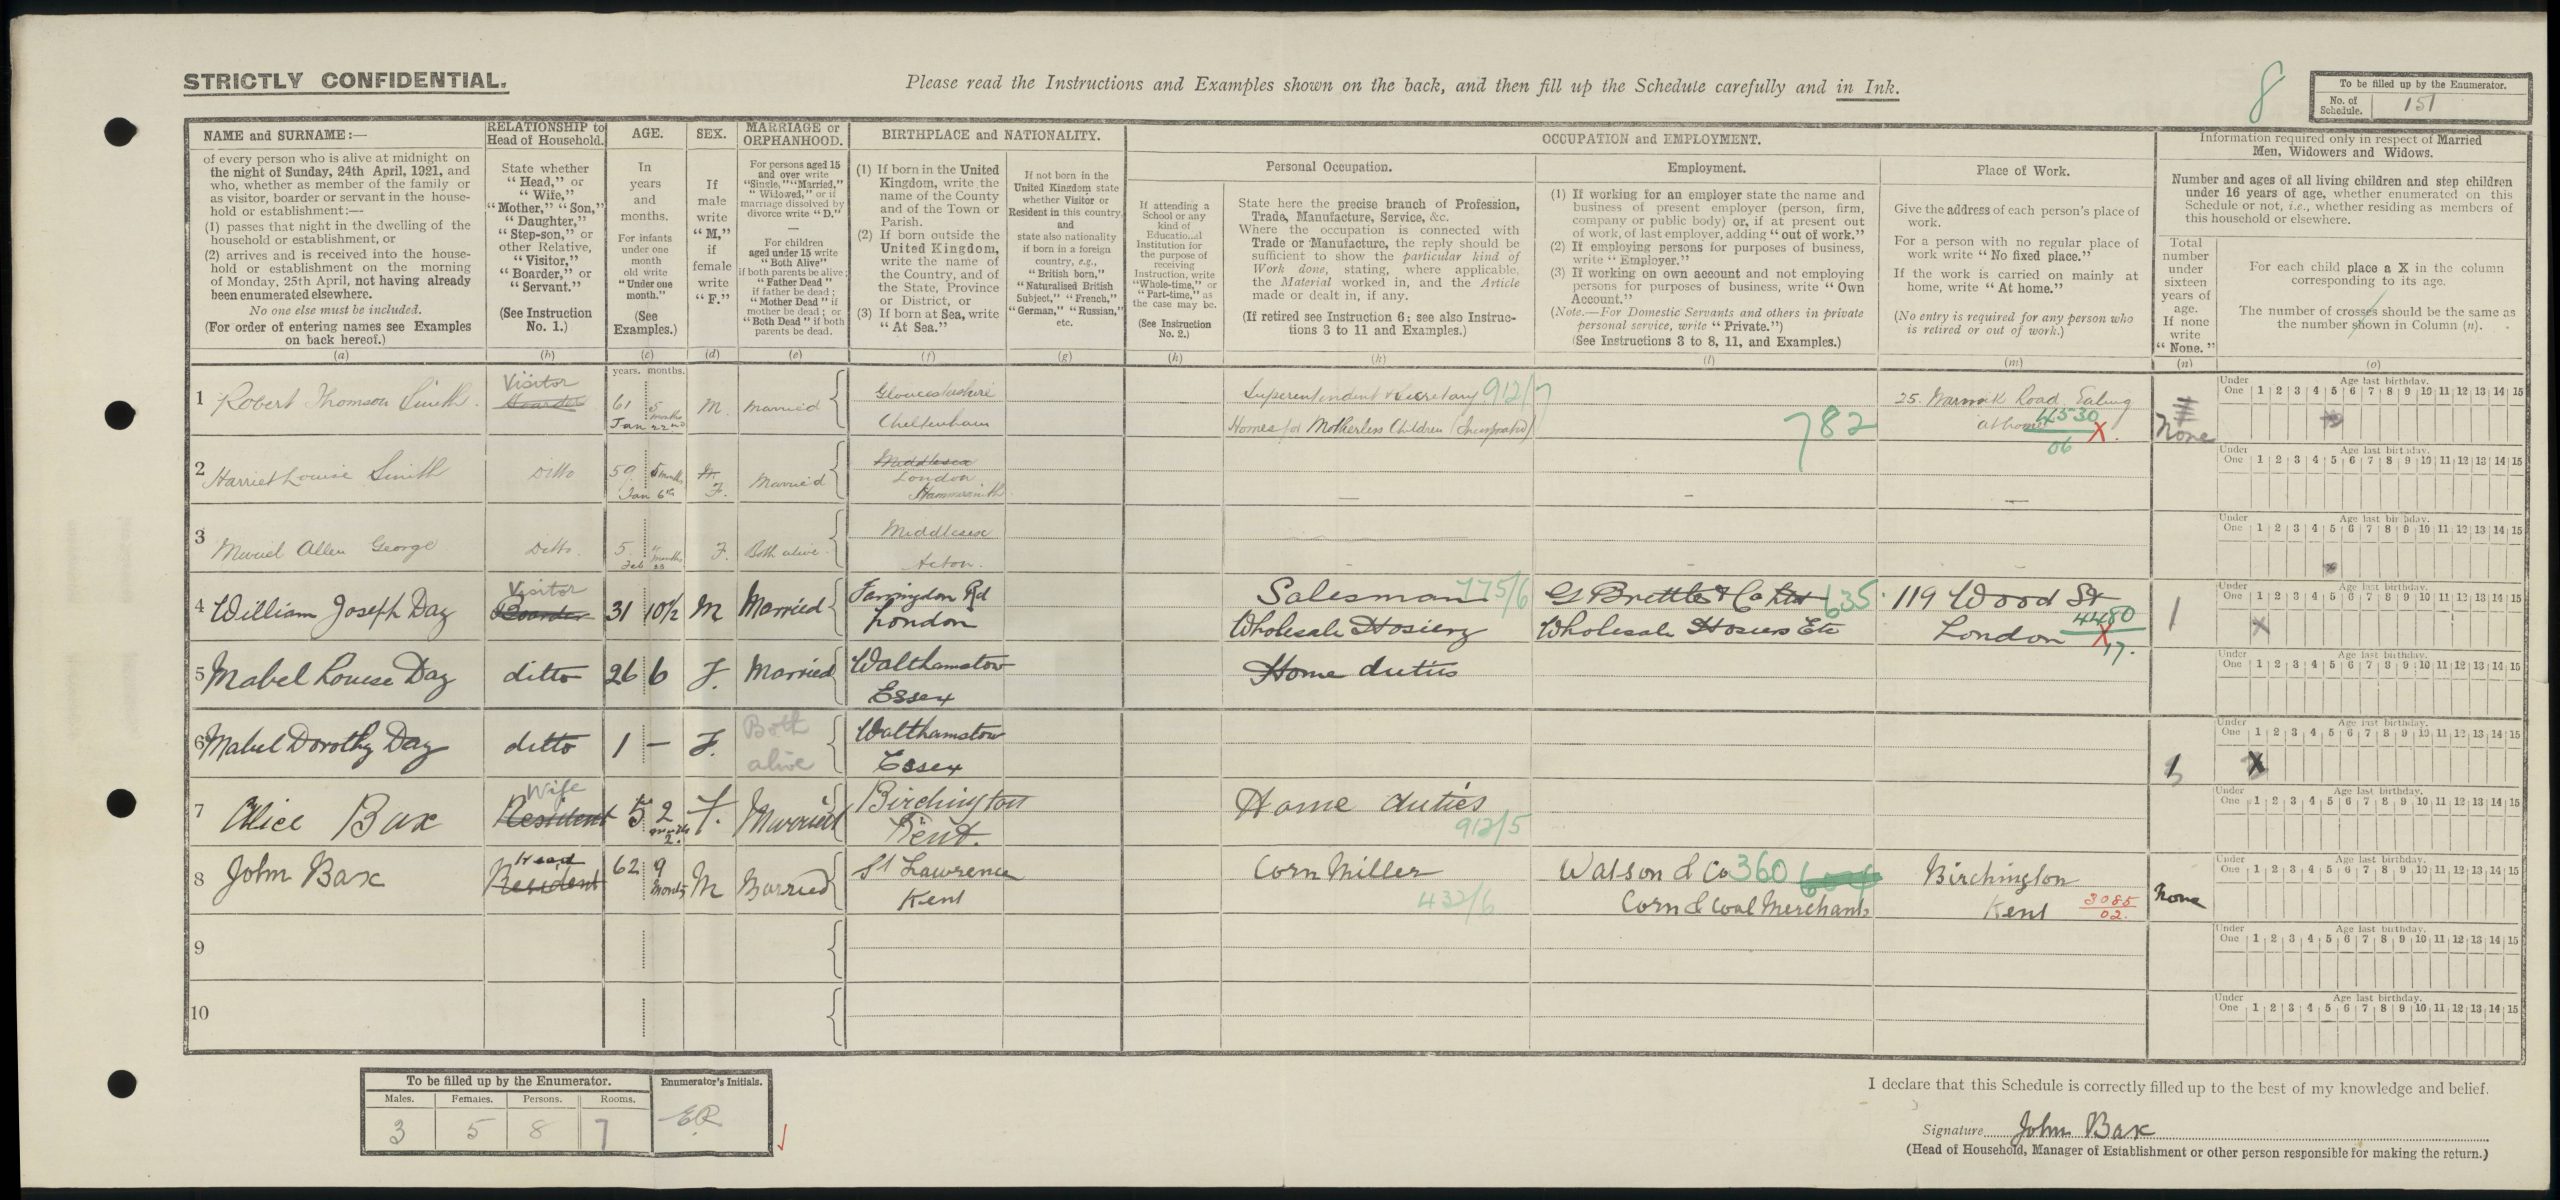 STRICTLY CONFIDENTIAL.
Please read the Instructions and Examples shown on the back, and then fill up the Schedule carefully and in Ink.
8
To be filled up by the Enumerator.
No. of Schedule. 151
NAME and SURNAME:—
of every person who is alive at midnight on
the night of Sunday, 24th April, 1921, and
who, whether as member of the family or
as visitor, boarder or servant in the house-
hold or establishment:—
(1) passes that night in the dwelling of the
household or establishment, or
(2) arrives and is received into the house-
hold or establishment on the morning
of Monday, 25th April, not having already
been enumerated elsewhere.
No one else must be included.
(For order of entering names see Examples
on back hereof.)
(a)
RELATIONSHIP to
Head of Household.
State whether
"Head," or
"Wife,"
"Mother," "Son,"
"Daughter,"
"Step-son," or
other Relative,
"Visitor,"
"Boarder," or
"Servant."
(See Instruction
No. 1.)
(b)
AGE.
In
years
and
months.
For infants
under one
month
old write
"Under one
month."
(See
Examples.)
(c)
years. months.
SEX.
If
male
write
"M,"
if
female
write
"F."
(d)
MARRIAGE or
ORPHANHOOD.
For persons aged 15
and over write
"Single," "Married,"
"Widowed," or if
marriage dissolved by
divorce write "D."
—
For children
aged under 15 write
"Both Alive"
if both parents be alive;
"Father Dead"
if father be dead;
"Mother Dead" if
mother be dead; or
"Both Dead" if both
parents be dead.
(e)
BIRTHPLACE and NATIONALITY.
(1) If born in the United
Kingdom, write the
name of the County
and of the Town or
Parish.
(2) If born outside the
United Kingdom,
write the name of
the Country, and of
the State, Province
or District, or
(3) If born at Sea, write
"At Sea."
(f)
If not born in the
United Kingdom state
whether Visitor or
Resident in this country,
and
state also nationality
if born in a foreign
country, e.g.,
"British born,"
"Naturalised British
Subject," "French,"
"German," "Russian,"
etc.
(g)
OCCUPATION and EMPLOYMENT.
If attending a
School or any
kind of
Educational
Institution for
the purpose of
receiving
Instruction, write
"Whole-time," or
"Part-time," as
the case may be.
(See Instruction
No. 2.)
(h)
Personal Occupation.
State here the precise branch of Profession,
Trade, Manufacture, Service, &c.
Where the occupation is connected with
Trade or Manufacture, the reply should be
sufficient to show the particular kind of
Work done, stating, where applicable,
the Material worked in, and the Article
made or dealt in, if any.
(If retired see Instruction 6: see also Instruc-
tions 3 to 11 and Examples.)
(k)
Employment.
(1) If working for an employer state the name and
business of present employer (person, firm,
company or public body) or, if at present out
of work, of last employer, adding "out of work."
(2) If employing persons for purposes of business,
write "Employer."
(3) If working on own account and not employing
persons for purposes of business, write "Own
Account."
(Note.—For Domestic Servants and others in private
personal service, write "Private.")
(See Instructions 3 to 8, 11, and Examples.)
(l)
Place of Work.
Give the address of each person's place of
work.
For a person with no regular place of
work write "No fixed place."
If the work is carried on mainly at
home, write "At home."
(No entry is required for any person who
is retired or out of work.)
(m)
Information required only in respect of Married
Men, Widowers and Widows.
Number and ages of all living children and step children
under 16 years of age, whether enumerated on this
Schedule or not, i.e., whether residing as members of
this household or elsewhere.
Total
number
under
sixteen
years of
age.
If none
write
"None."
(n)
For each child place a X in the column
corresponding to its age.
The number of crosses should be the same as
the number shown in Column (n).
(o)
Under One Age last birthday. 1 2 3 4 5 6 7 8 9 10 11 12 13 14 15
1 Robert Thomson Smith. Visitor Boarder 61 5 months Jan 22nd M. Married Gloucestershire Cheltenham
Superintendent & Secretary 912/7
Homes for Motherless Children (Incorporated) 782
25. Warwick Road Ealing
at home 4530 06 X. None
Under One Age last birthday. 1 2 3 4 5 6 7 8 9 10 11 12 13 14 15
2 Harriet Louise Smith Ditto 59 5 months Jan 6th M. F. Married Middlesex London Hammersmith
Under One Age last birthday. 1 2 3 4 5 6 7 8 9 10 11 12 13 14 15
3 Muriel Allen George Ditto. 5 Feb F. Both alive. Middlesex Acton.
Under One Age last birthday. 1 2 3 4 5 6 7 8 9 10 11 12 13 14 15
4 William Joseph Day Visitor Boarder 31 10½ M Married Farringdon Rd London
Salesman 775/6 G Brettle & Co Ltd 635 119 Wood St
Wholesale Hosiery Wholesale Hosiers Etc London 4480 X 17. 1 X
Under One Age last birthday. 1 2 3 4 5 6 7 8 9 10 11 12 13 14 15
5 Mabel Louise Day ditto 26 6 F. Married Walthamstow Essex Home duties
Under One Age last birthday. 1 2 3 4 5 6 7 8 9 10 11 12 13 14 15
6 Mabel Dorothy Day ditto 1 — F. Both alive Walthamstow Essex 1 X
Under One Age last birthday. 1 2 3 4 5 6 7 8 9 10 11 12 13 14 15
7 Alice Bax Wife Resident 5 2 F. Married Birchington Kent. Home duties 912/5
Under One Age last birthday. 1 2 3 4 5 6 7 8 9 10 11 12 13 14 15
8 John Bax Head Resident 62 9 Months M Married St Lawrence Kent
Corn Miller 432/6 Watson & Co 360 Corn & Coal Merchants Birchington Kent 3085 02. None
Under One Age last birthday. 1 2 3 4 5 6 7 8 9 10 11 12 13 14 15
9
Under One Age last birthday. 1 2 3 4 5 6 7 8 9 10 11 12 13 14 15
10
Under One Age last birthday. 1 2 3 4 5 6 7 8 9 10 11 12 13 14 15
To be filled up by the Enumerator.
Males. Females. Persons. Rooms.
3 5 8 7
Enumerator's Initials.
ER
I declare that this Schedule is correctly filled up to the best of my knowledge and belief.
Signature John Bax
(Head of Household, Manager of Establishment or other person responsible for making the return.)